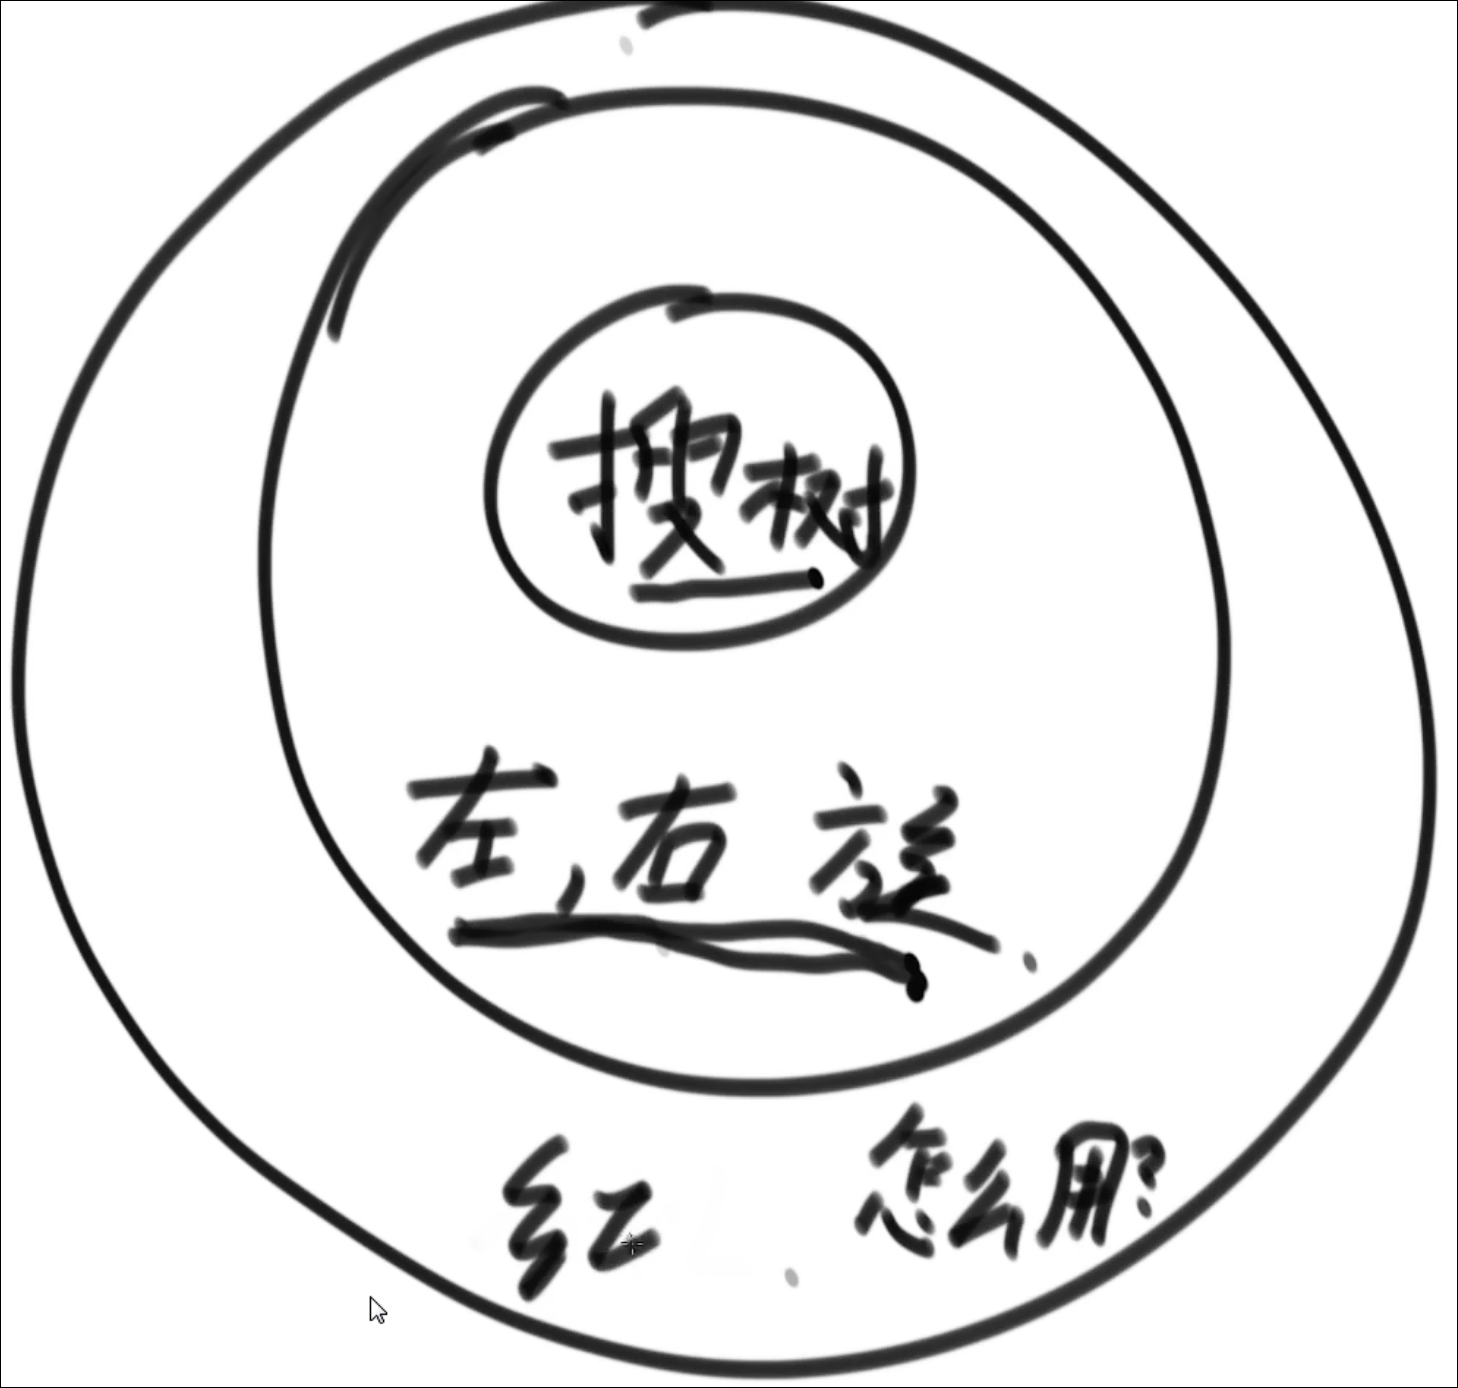 搜树
左,右旋
红 怎么用?